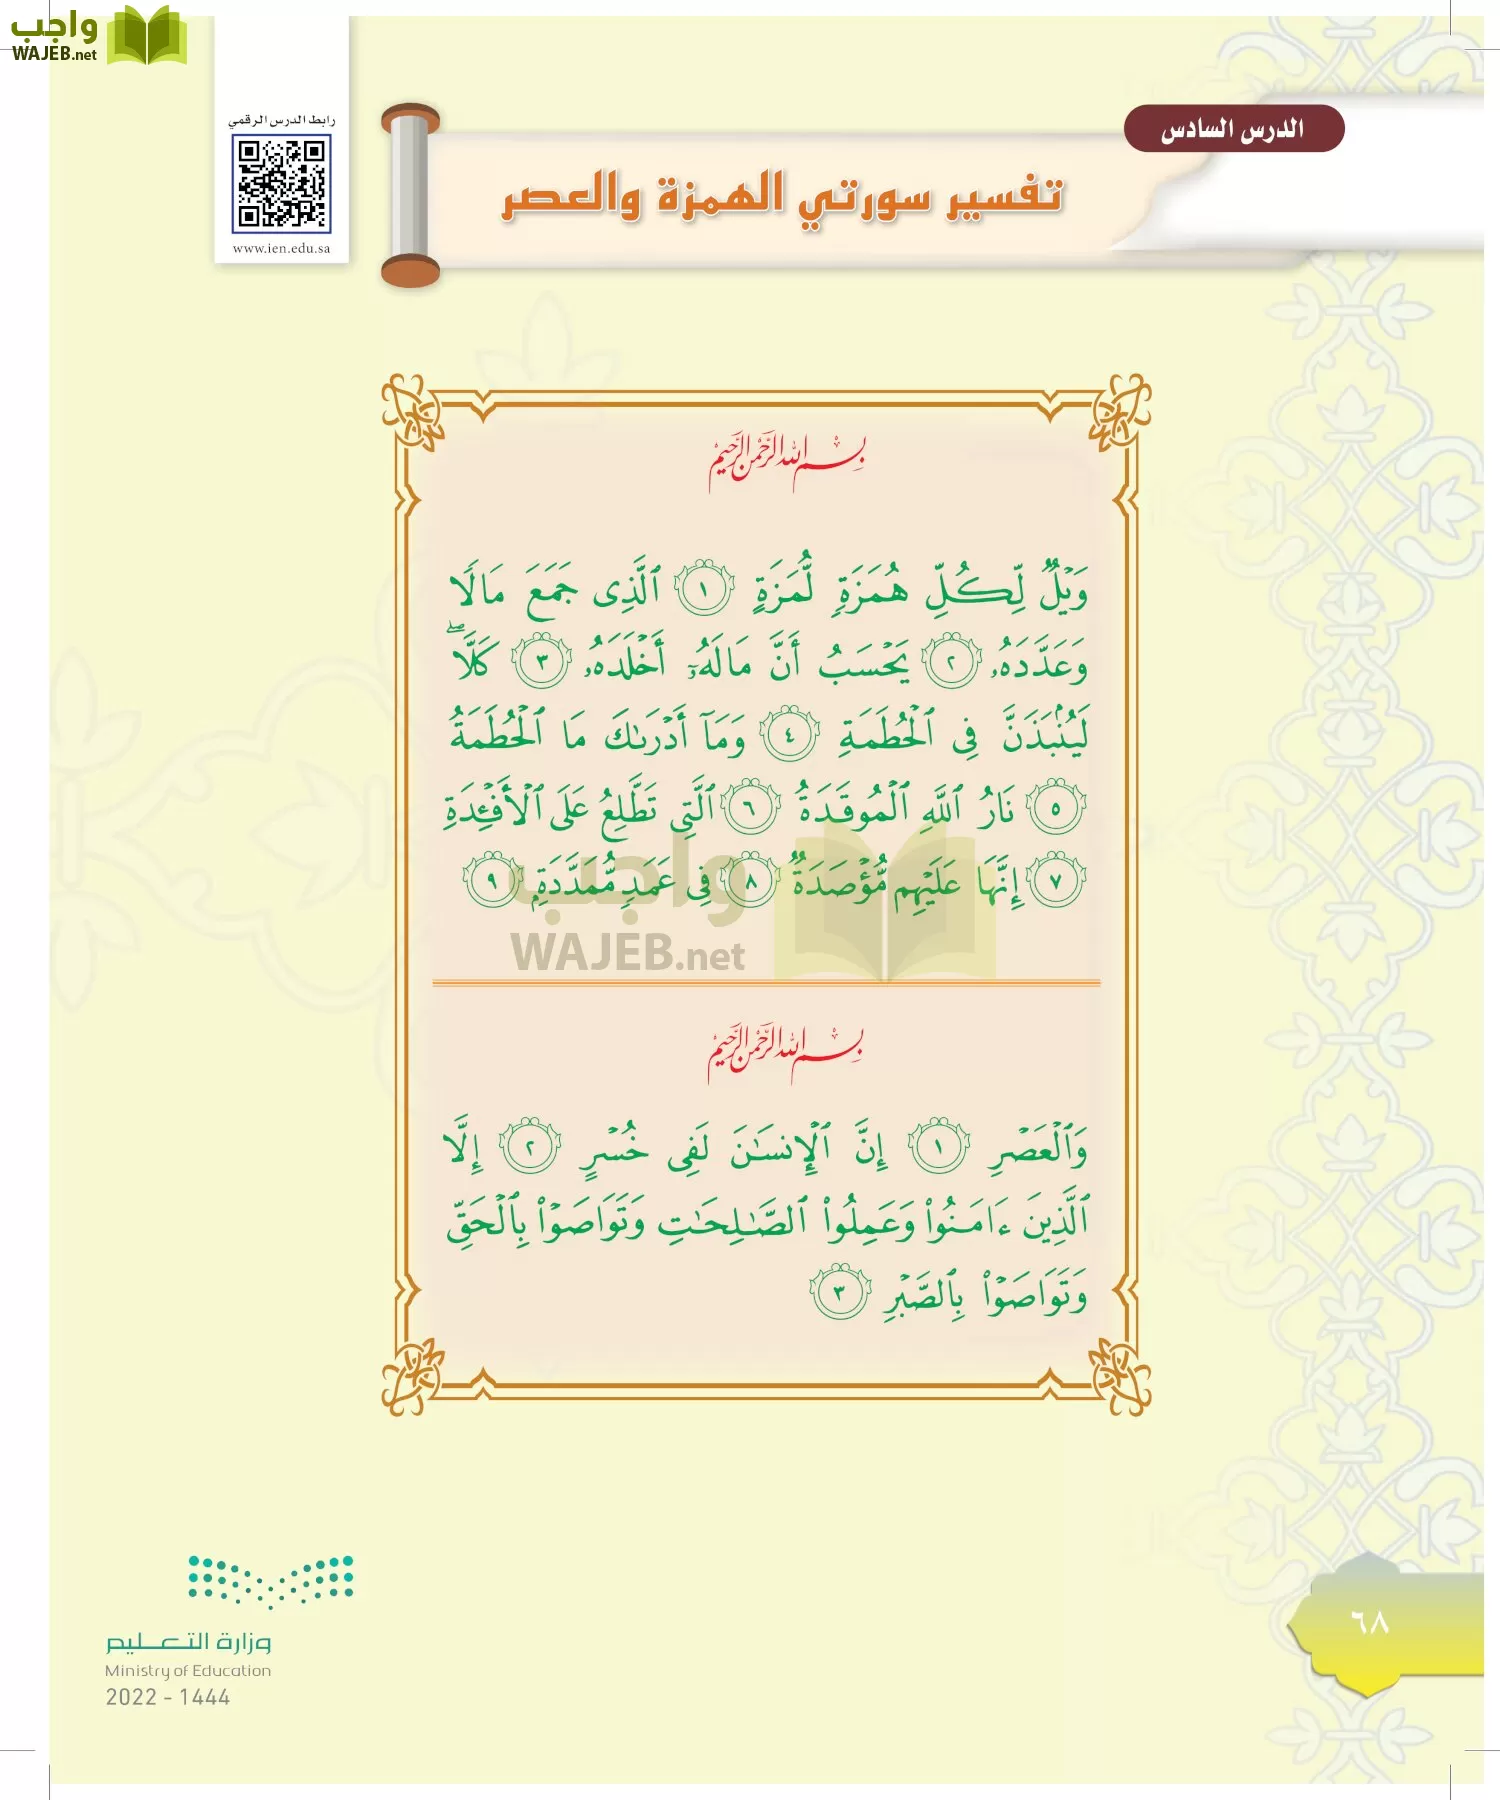 واجب
WAJEB.net
رابط الدرس الرقمي
www.ien.edu.sa
الدرس السادس
تفسير سورتي الهمزة والعصر
بِسْمِ اللَّهِ الرَّحْمَٰنِ الرَّحِيمِ
وَيْلٌ لِّكُلِّ هُمَزَةٍ لُّمَزَةٍ ١ ٱلَّذِى جَمَعَ مَالًا
وَعَدَّدَهُۥ ٢ يَحْسَبُ أَنَّ مَالَهُۥٓ أَخْلَدَهُۥ ٣ كَلَّا ۖ
لَيُنۢبَذَنَّ فِى ٱلْحُطَمَةِ ٤ وَمَآ أَدْرَىٰكَ مَا ٱلْحُطَمَةُ
٥ نَارُ ٱللَّهِ ٱلْمُوقَدَةُ ٦ ٱلَّتِى تَطَّلِعُ عَلَى ٱلْأَفْـِٔدَةِ
٧ إِنَّهَا عَلَيْهِم مُّؤْصَدَةٌ ٨ فِى عَمَدٍ مُّمَدَّدَةٍۭ ٩
واجب
WAJEB.net
بِسْمِ اللَّهِ الرَّحْمَٰنِ الرَّحِيمِ
وَٱلْعَصْرِ ١ إِنَّ ٱلْإِنسَـٰنَ لَفِى خُسْرٍ ٢ إِلَّا
ٱلَّذِينَ ءَامَنُوا۟ وَعَمِلُوا۟ ٱلصَّـٰلِحَـٰتِ وَتَوَاصَوْا۟ بِٱلْحَقِّ
وَتَوَاصَوْا۟ بِٱلصَّبْرِ ٣
وزارة التعليم
Ministry of Education
2022 - 1444
٦٨